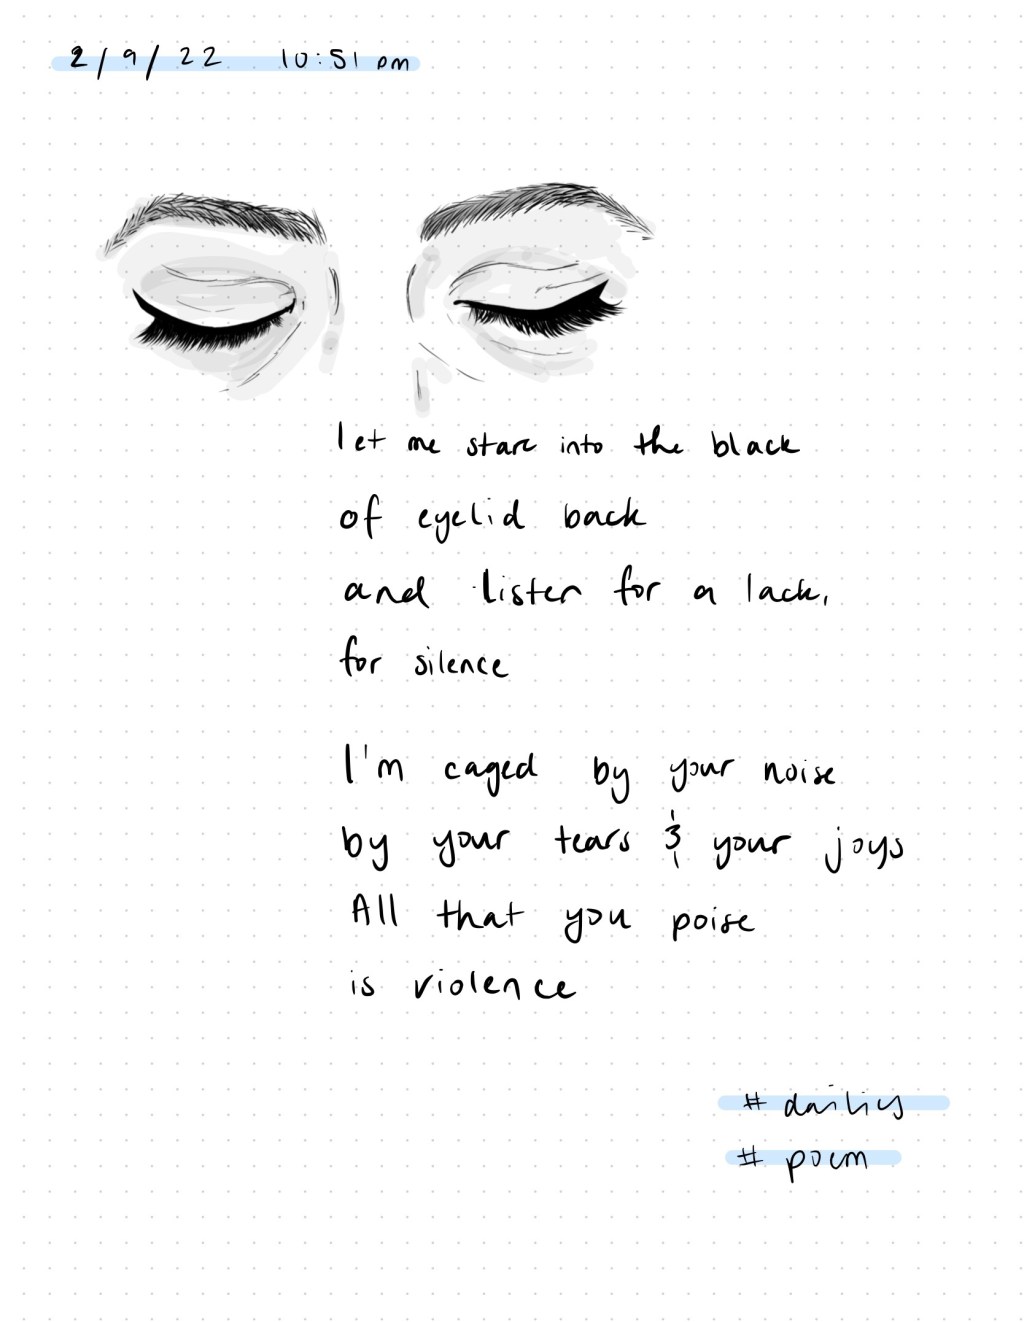 2/9/22 10:51 pm
let me stare into the black
of eyelid back
and listen for a lack,
for silence
I'm caged by your noise
by your tears & your joys
All that you poise
is violence
# dailies
# poem